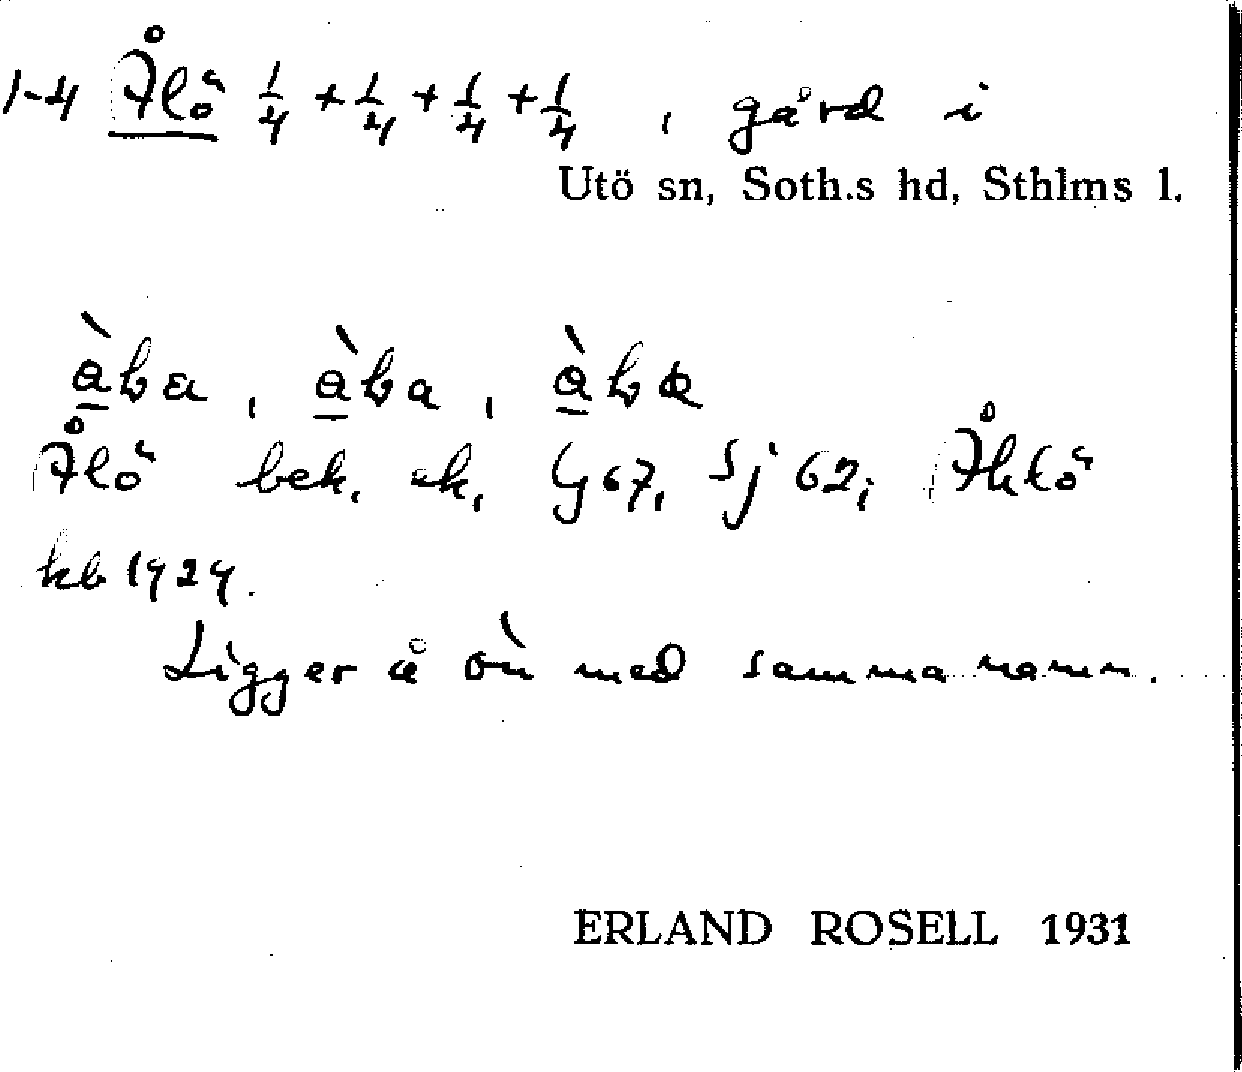 1-4 Ålö 1/4 + 1/4 + 1/4 + 1/4, gård i
Utö sn, Soth.s hd, Sthlms l.
Ålö bek. ek, G 67, Sj 62; Åhlö
kb 1929.
Ligger å ön med samma namn.
ERLAND ROSELL 1931